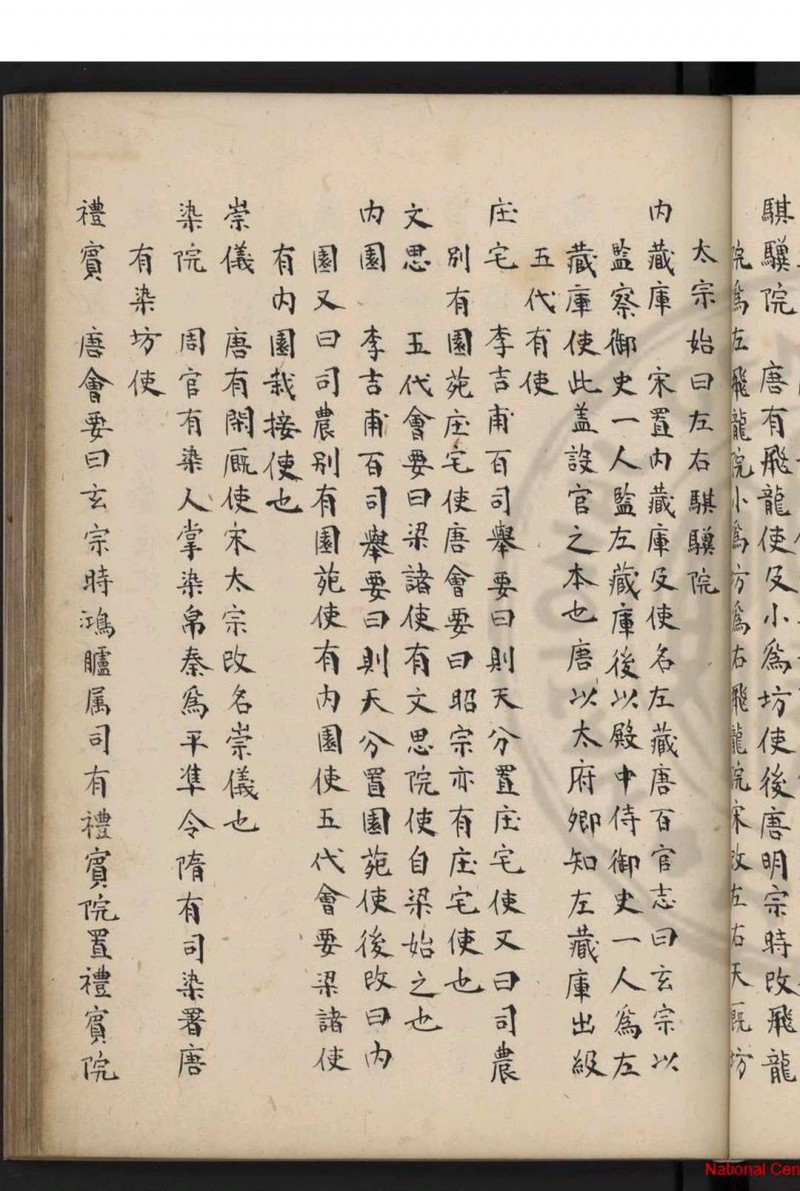 騏驥院 唐有飛龍使及小馬坊使後唐明宗時改飛龍
院爲左飛龍院小馬坊爲右飛龍院宋改左右天厩坊
太宗始曰左右騏驥院
内藏庫 宋置内藏庫及使名左藏唐百官志曰玄宗以
監察御史一人監左藏庫後以殿中侍御史一人爲左
藏庫使此盖設官之本也唐以太府卿知左藏庫出級
五代有使
庄宅 李吉甫百司舉要曰則天分置庄宅使又曰司農
別有園苑庄宅使唐會要曰昭宗亦有庄宅使也
文思 五代會要曰梁諸使有文思院使自梁始之也
内園 李吉甫百司舉要曰則天分置園苑使後改曰内
園又曰司農别有園苑使有内園使五代會要梁諸使
有内園栽接使也
崇儀 唐有閑厩使宋太宗改名崇儀也
染院 周官有染人掌染帛秦爲平準令隋有司染署唐
有染坊使
禮賓 唐會要曰玄宗時鴻臚属司有禮賓院置禮賓院
National Cen